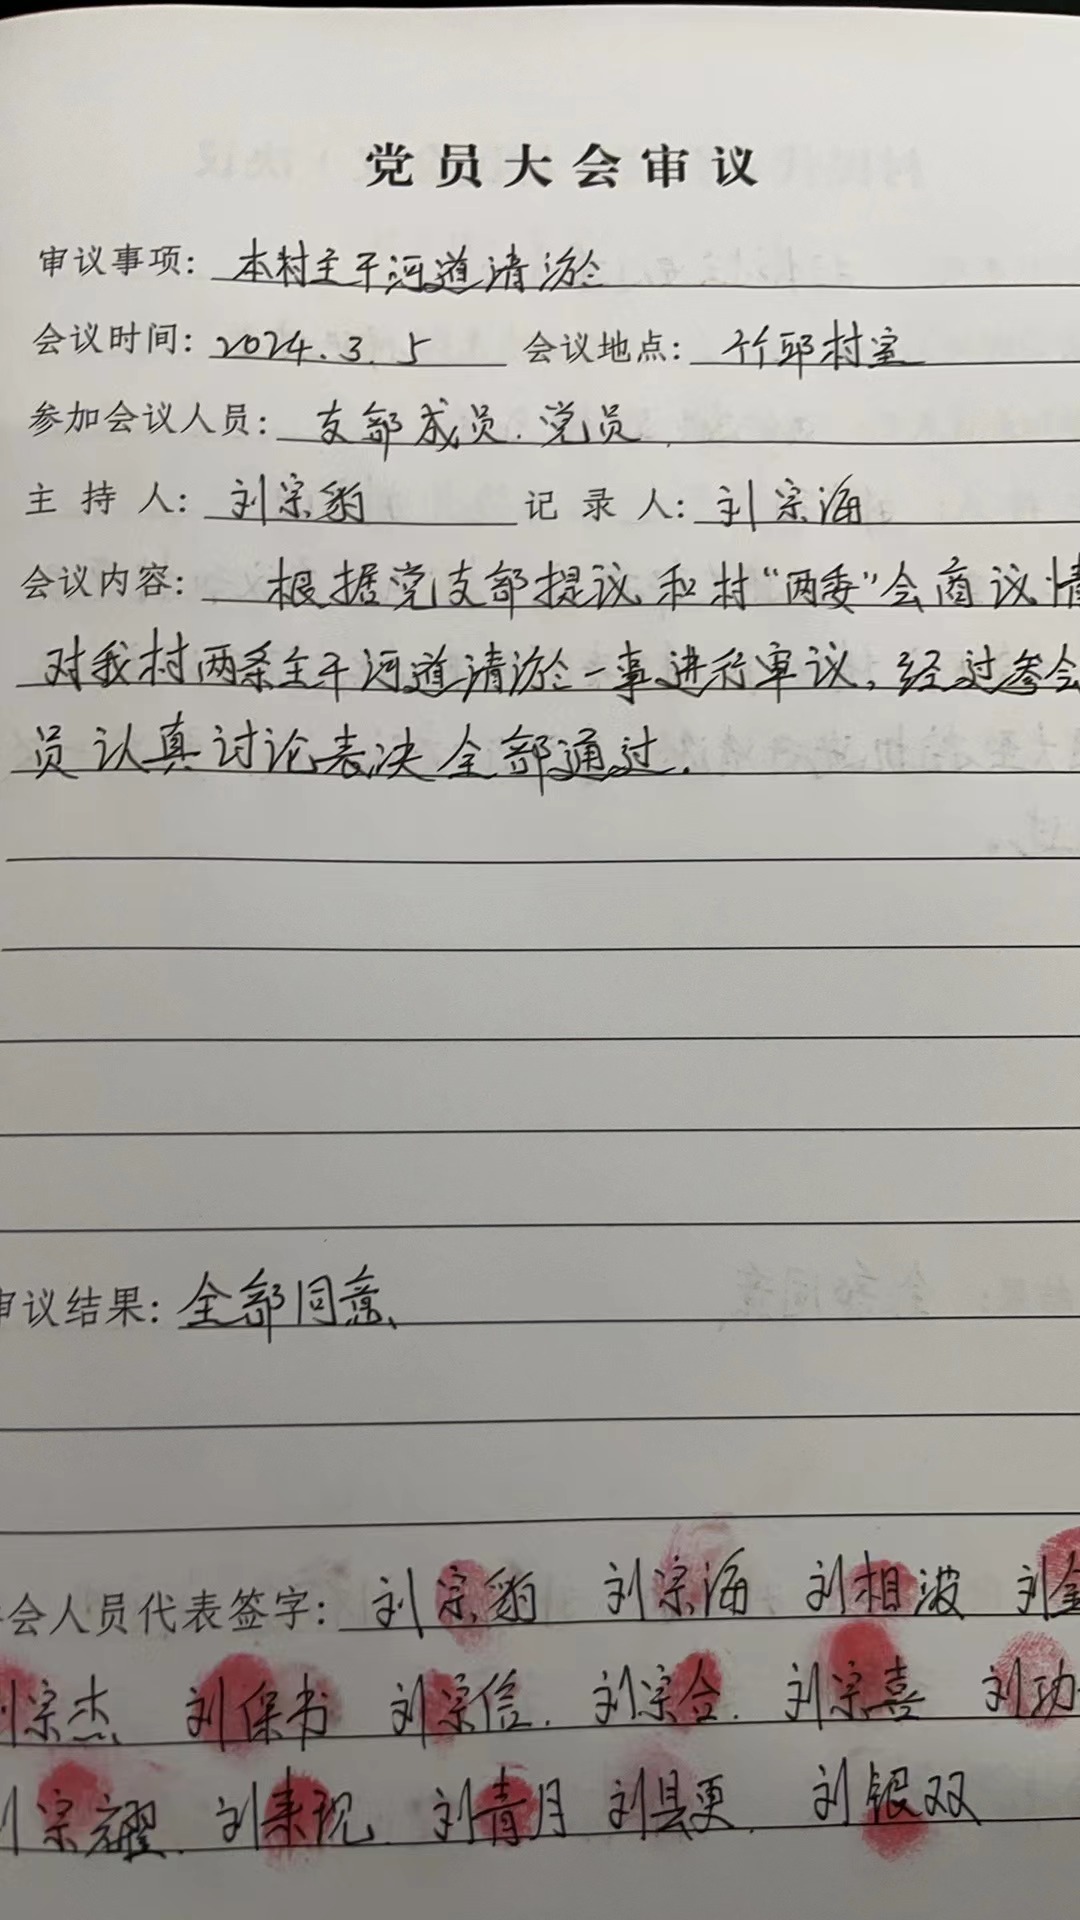 党员大会审议
审议事项: 本村主干河道清淤
会议时间: 2024.3.5 会议地点: 竹邱村室
参加会议人员: 支部成员.党员.
主持人: 刘宗豹 记录人: 刘宗海
会议内容: 根据党支部提议和村“两委”会商议情
对我村两条主干河道清淤一事进行审议,经过参会
员认真讨论表决全部通过.
审议结果: 全部同意、
会人员代表签字: 刘宗豹 刘宗海 刘相波 刘金
刘宗杰 刘保书 刘宗信. 刘宗合. 刘宗喜 刘功
刘宗耀. 刘来现. 刘青月 刘县更. 刘银双